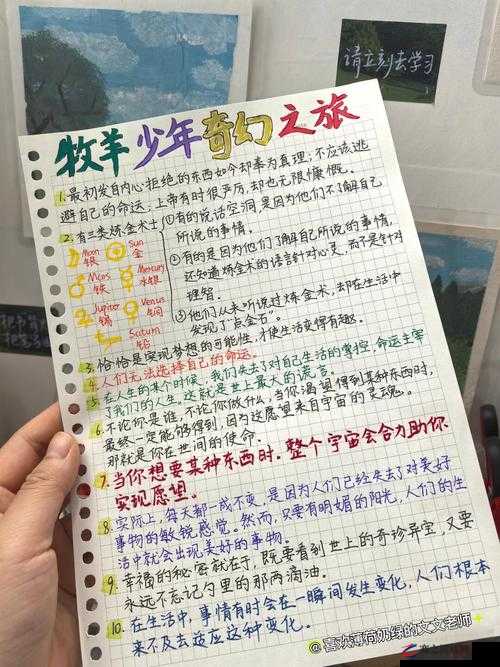 请立刻去学习
牧羊少年奇幻之旅
1. 最初发自内心拒绝的东西如今却奉为真理；不应该逃
避自己的命运，上帝有时很严厉，却也无限慷慨。
2. 有三类炼金术士
①有的说话空洞，是因为他们不了解自己
所说的事情。
②有的是因为他们了解自己所说的事情，
还知道炼金术的语言针对心灵，而不是针对
理智。
③他们从未听说过炼金术，却在生活中
发现了“点金石”。
Moon
银
Sun
金
Mars
铁
Mercury
水银
Jupiter
锡
Venus
铜
Saturn
铅
3. 恰恰是实现梦想的可能性，才使生活变得有趣。
4. 人们无法选择自己的命运。
5. 在人生的某个时候，我们失去了对自己生活的掌控，命运主宰
了我们的人生，这就是世上最大的谎言。
6. 不论你是谁，不论你做什么，当你渴望得到某种东西时，
最终一定能够得到，因为这愿望来自宇宙的灵魂。
那就是你在世间的使命。
7. 当你想要某种东西时，整个宇宙会合力助你
实现愿望。
8. 实际上，每天都一成不变，是因为人们已经失去了对美好
事物的敏锐感觉。然而，只要有明媚的阳光，人们的生
活中就会出现美好的事物。
9. 幸福的秘密就在于，既要看到世上的奇珍异宝，又要
永远不忘记勺里的那两滴油。
10. 在生活中，事情有时会在一瞬间发生变化，人们根本
来不及去适应这种变化。
@喜欢薄荷奶绿的文文老师